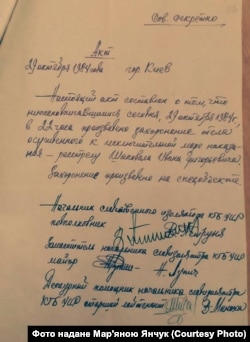 Сов. Секретно
Акт
29 октября 1984 года гор. Киев
Настоящий акт составлен о том, что
нижеподписавшимися сего дня, 29 октября 1984г.
в 22 часа произведено захоронение тела
осужденного к исключительной мере наказа-
ния – расстрелу
Захоронение произведено на спецобъекте
Начальник следственного изолятора КГБ УССР
подполковник Петруня
Заместитель начальника следизолятора КГБ УССР
майор
Дежурный помощник начальника следизолятора
КГБ УССР старший лейтенант
Фото надане Мар'яною Янчук (Courtesy Photo)